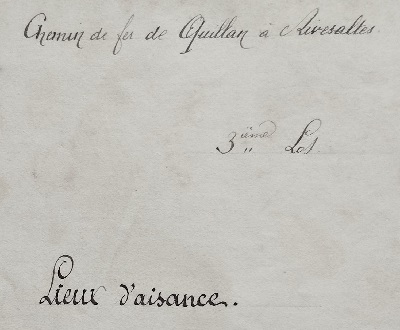 Chemin de fer de Quillan à Rivesaltes.
3ième Lot.
Lieux d'aisance.